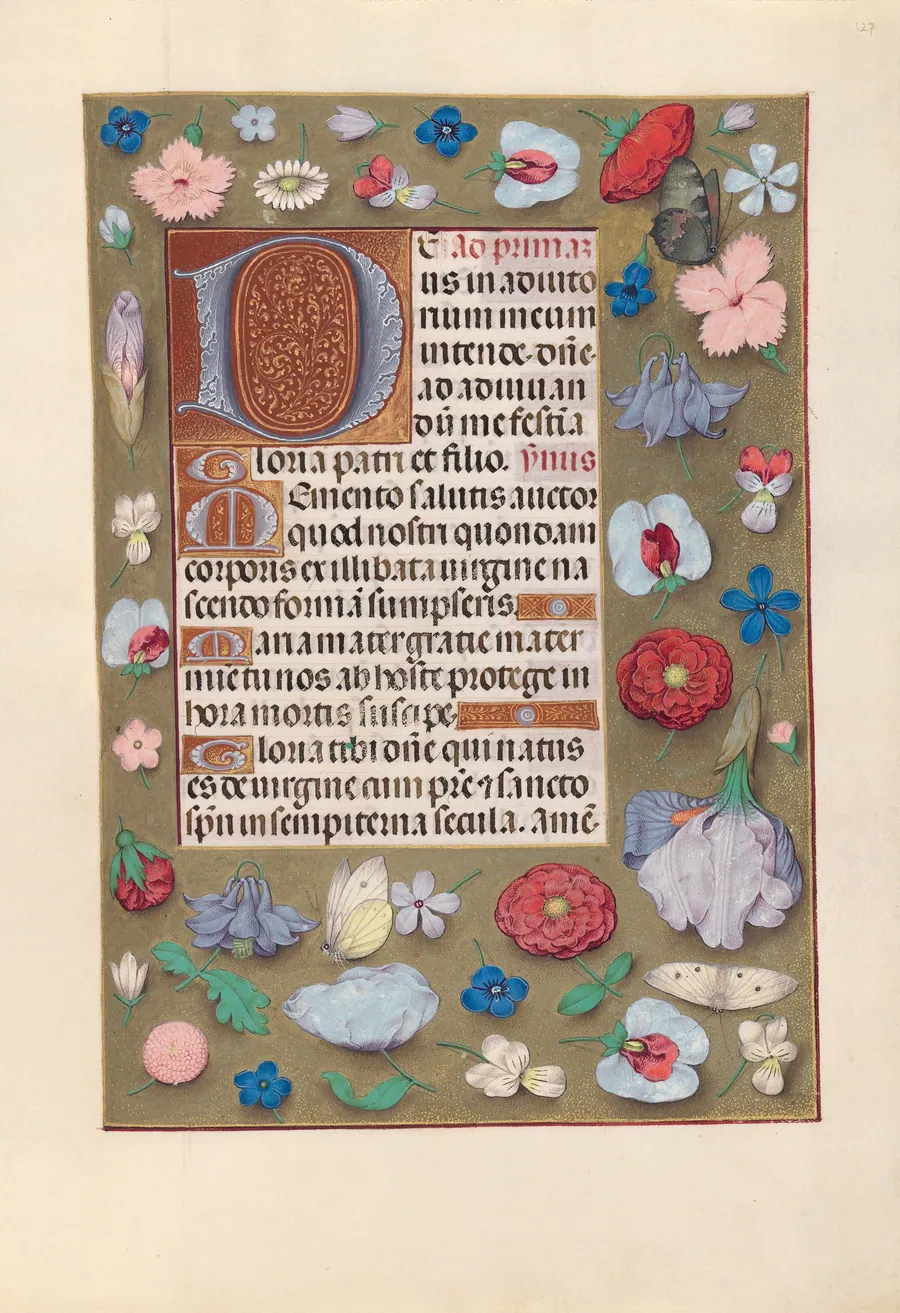 127
E Ad primaz
D
us in adiuto
rium meum
intende · dn̄e ·
ad adiuuan
dū me festīa
Gloria patri et filio. ym̄us
Memento salutis auctor
quod nostri quondam
corporis ex illibata uirgine na
scendo formā sumpseris.
Maria mater gratie mater
mīe tu nos ab hoste protege in
hora mortis suscipe
Gloria tibi dn̄e qui natus
es de uirgine cum pr̄e ⁊ sancto
sp̄u in sempiterna secula. Amē ·